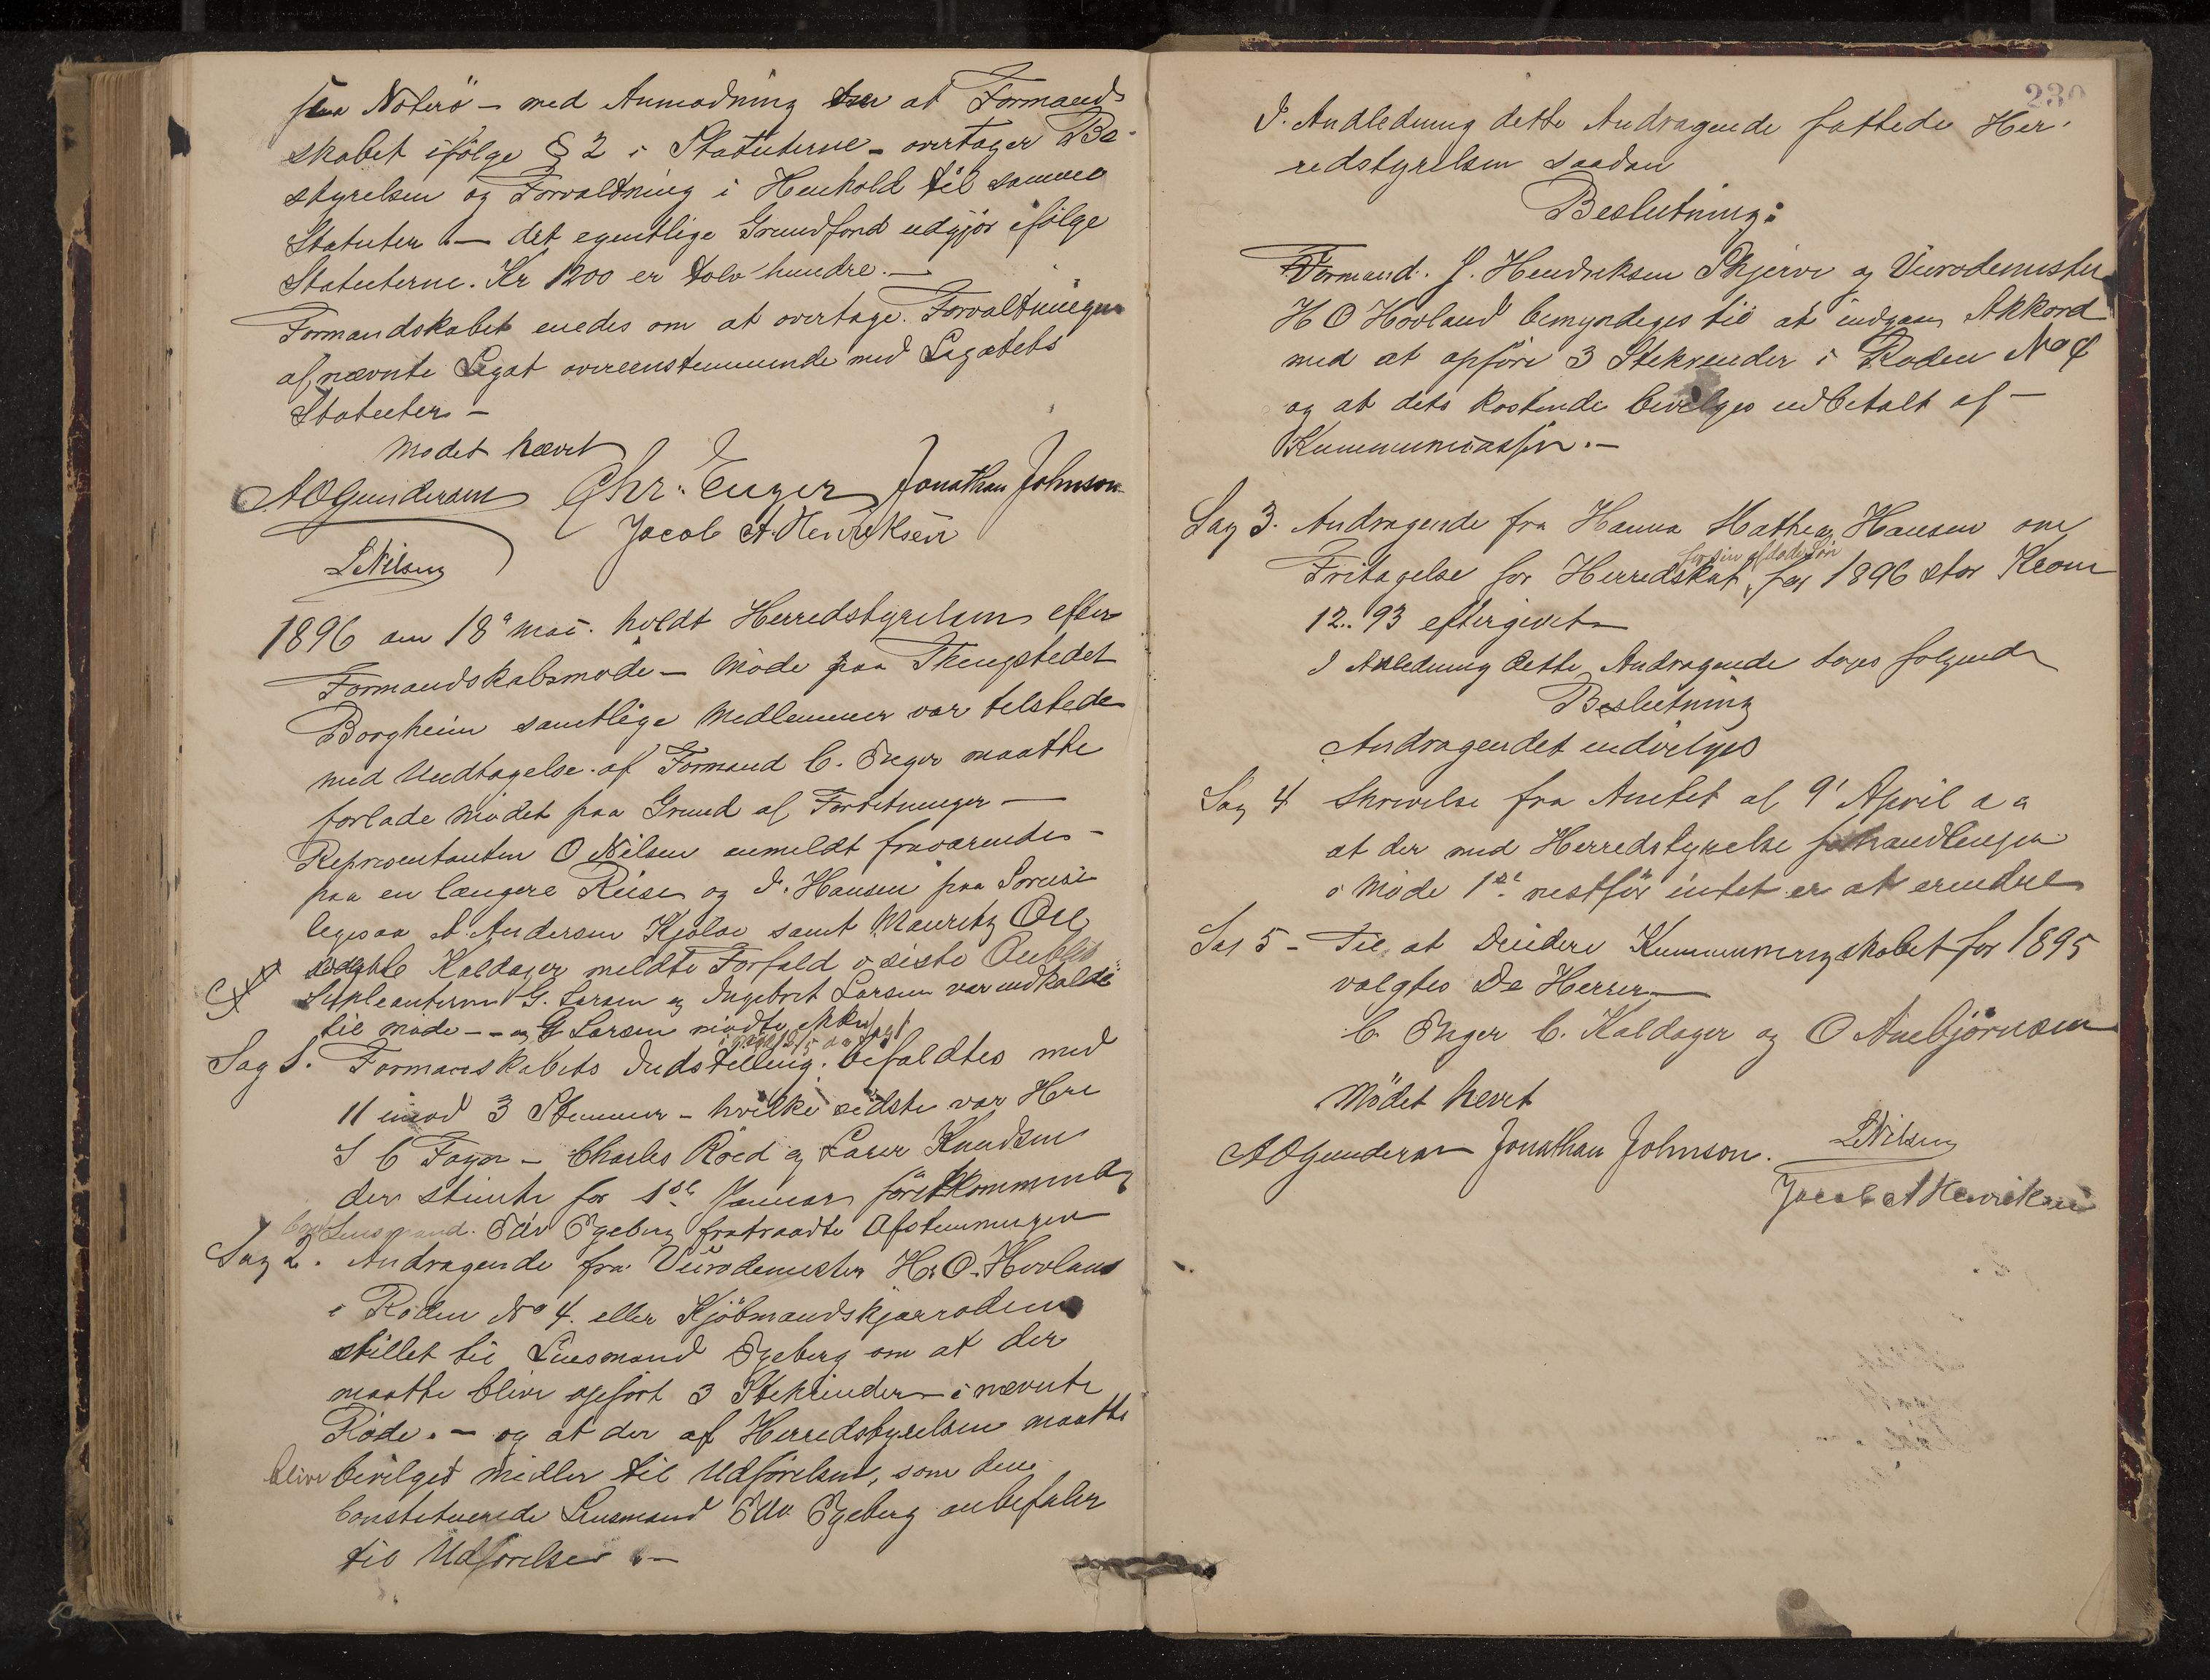 paa Nøterö – med Anmodning at Formand-
skabet ifölge § 2 i Statuterne – overtager Be-
styrelsen og Forvaltning i Henhold til samme
Statuter – det egentlige Grundfond udgjör ifölge
Statuterne. Kr 1200 er tolv hundre. –
Formandskabet enedes om at overtage Forvaltningen
af nævnte Legat overeenstemmende med Legatets
Statuter –
Mödet hævet
A O Gundersen Chr. Enger Jonathan Johnson
Jacob A. Henriksen
L Nilsen
1896 den 18de Mai. holdt Herredstyrelsen efter
Formandskabsmöde – Möde paa Thingstedet
Borgheim samtlige Medlemmer var tilstede
med Undtagelse af Formand C. Enger maatte
forlade Mödet paa Grund af Forretninger –
Representanten O Nilsen anmeldt fraværende –
paa en længere Reise og I. Hansen paa
legesaa A. Andersen Kjölöe samt Mauritz
Kaldager meldte Forfald i siste
Supleanterne G. Larsen og Ingebret Larsen var indkaldt
til Möde – og G Larsen mödte ikke
Sag 1. Formanskabets Indstilling befaldtes med
11 imod 3 Stemmer – hvilke sidste var Hrr
S C Fogn – Charles Röed og Laser Knudsen
der stemte for 1ste Januar förstkommende
Lensmand. Edv Egeberg fratraadte Afstemningen
Sag 2. Andragende fra Veirodemester H. O. Hovland
i Roden No 4. eller Kjöbmandskjærroden
stillet til Lensmand Egeberg om at der
maatte blive opfört 3 Stekrender i nævnte
Röde. – og at der af Herredstyrelsen maatte
blive bevilget Midler til Udförelsen, som den
Constituerede Lensmand Edv. Egeberg anbefaler
til Udförelse. –
230
I Andledning dette Andragende fattede Her-
redstyrelsen saadan
Beslutning:
Formand. J. Hendriksen Skjerve og Veirodemester
H O Hovland bemyndiges til at indgaa Akkord
med at opföre 3 Stekrender i Roden No 4
og at dets Kostende bevilges udbetalt af –
Kummunicassen. –
Sag 3. Andragende fra Hanna Mathea Hansen om
for sin afdöde Sön
Fritagelse for Herredskat, for 1896 stor Kroner
12.. 93 eftergivet
I Anledning dette Andragende toges folgende
Beslutning
Andragendet indvilges
Sag 4 Skrivelse fra Amtet af 9' April a a
at der med Herredstyrelse forhandlingen
i Möde 1ste intet er at erindre
Sag 5 – Til at Desidere Kummuneregnskabet for 1895
valgtes De Herrer
C. Enger C. Kaldager og O Anebjörnsen
Mödet hevet
A O Gundersen Jonathan Johnson. L Nilsen
Jacob A Henriksen